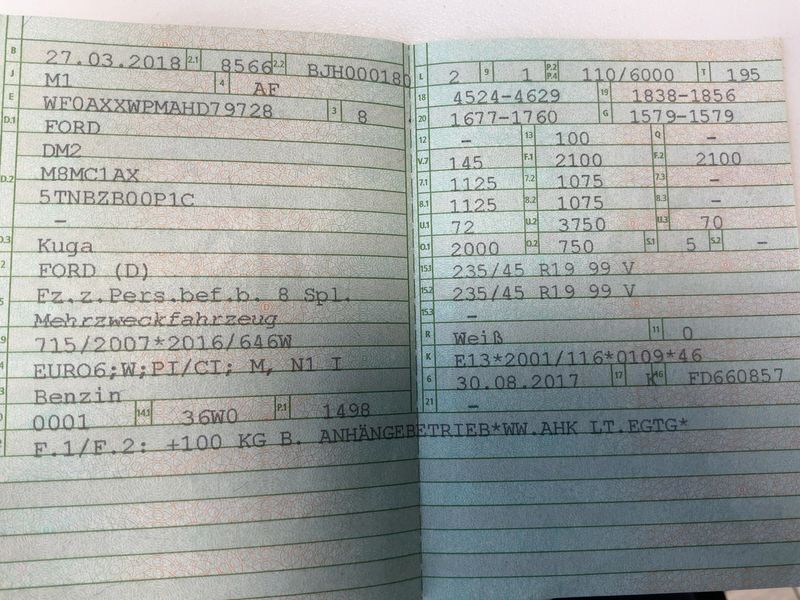 B 27.03.2018 2.1 8566 2.2 BJH000180
J M1 4 AF
E WF0AXXWPMAHD79728 3 8
D.1 FORD
D.2 DM2
M8MC1AX
5TNBZB00P1C
–
D.3 Kuga
2 FORD (D)
5 Fz.z.Pers.bef.b. 8 Spl.
Mehrzweckfahrzeug
9 715/2007*2016/646W
4 EURO6;W;PI/CI; M, N1 I
3 Benzin
0 0001 14.1 36W0 P.1 1498
2 F.1/F.2: +100 KG B. ANHÄNGEBETRIEB*WW.AHK LT.EGTG*
L 2 9 1 P.2 P.4 110/6000 T 195
18 4524-4629 19 1838-1856
20 1677-1760 G 1579-1579
12 – 13 100 Q –
V.7 145 F.1 2100 F.2 2100
7.1 1125 7.2 1075 7.3 –
8.1 1125 8.2 1075 8.3 –
U.1 72 U.2 3750 U.3 70
O.1 2000 O.2 750 S.1 5 S.2 –
15.1 235/45 R19 99 V
15.2 235/45 R19 99 V
15.3 –
R Weiß 11 0
K E13*2001/116*0109*46
6 30.08.2017 17 K 16 FD660857
21 –